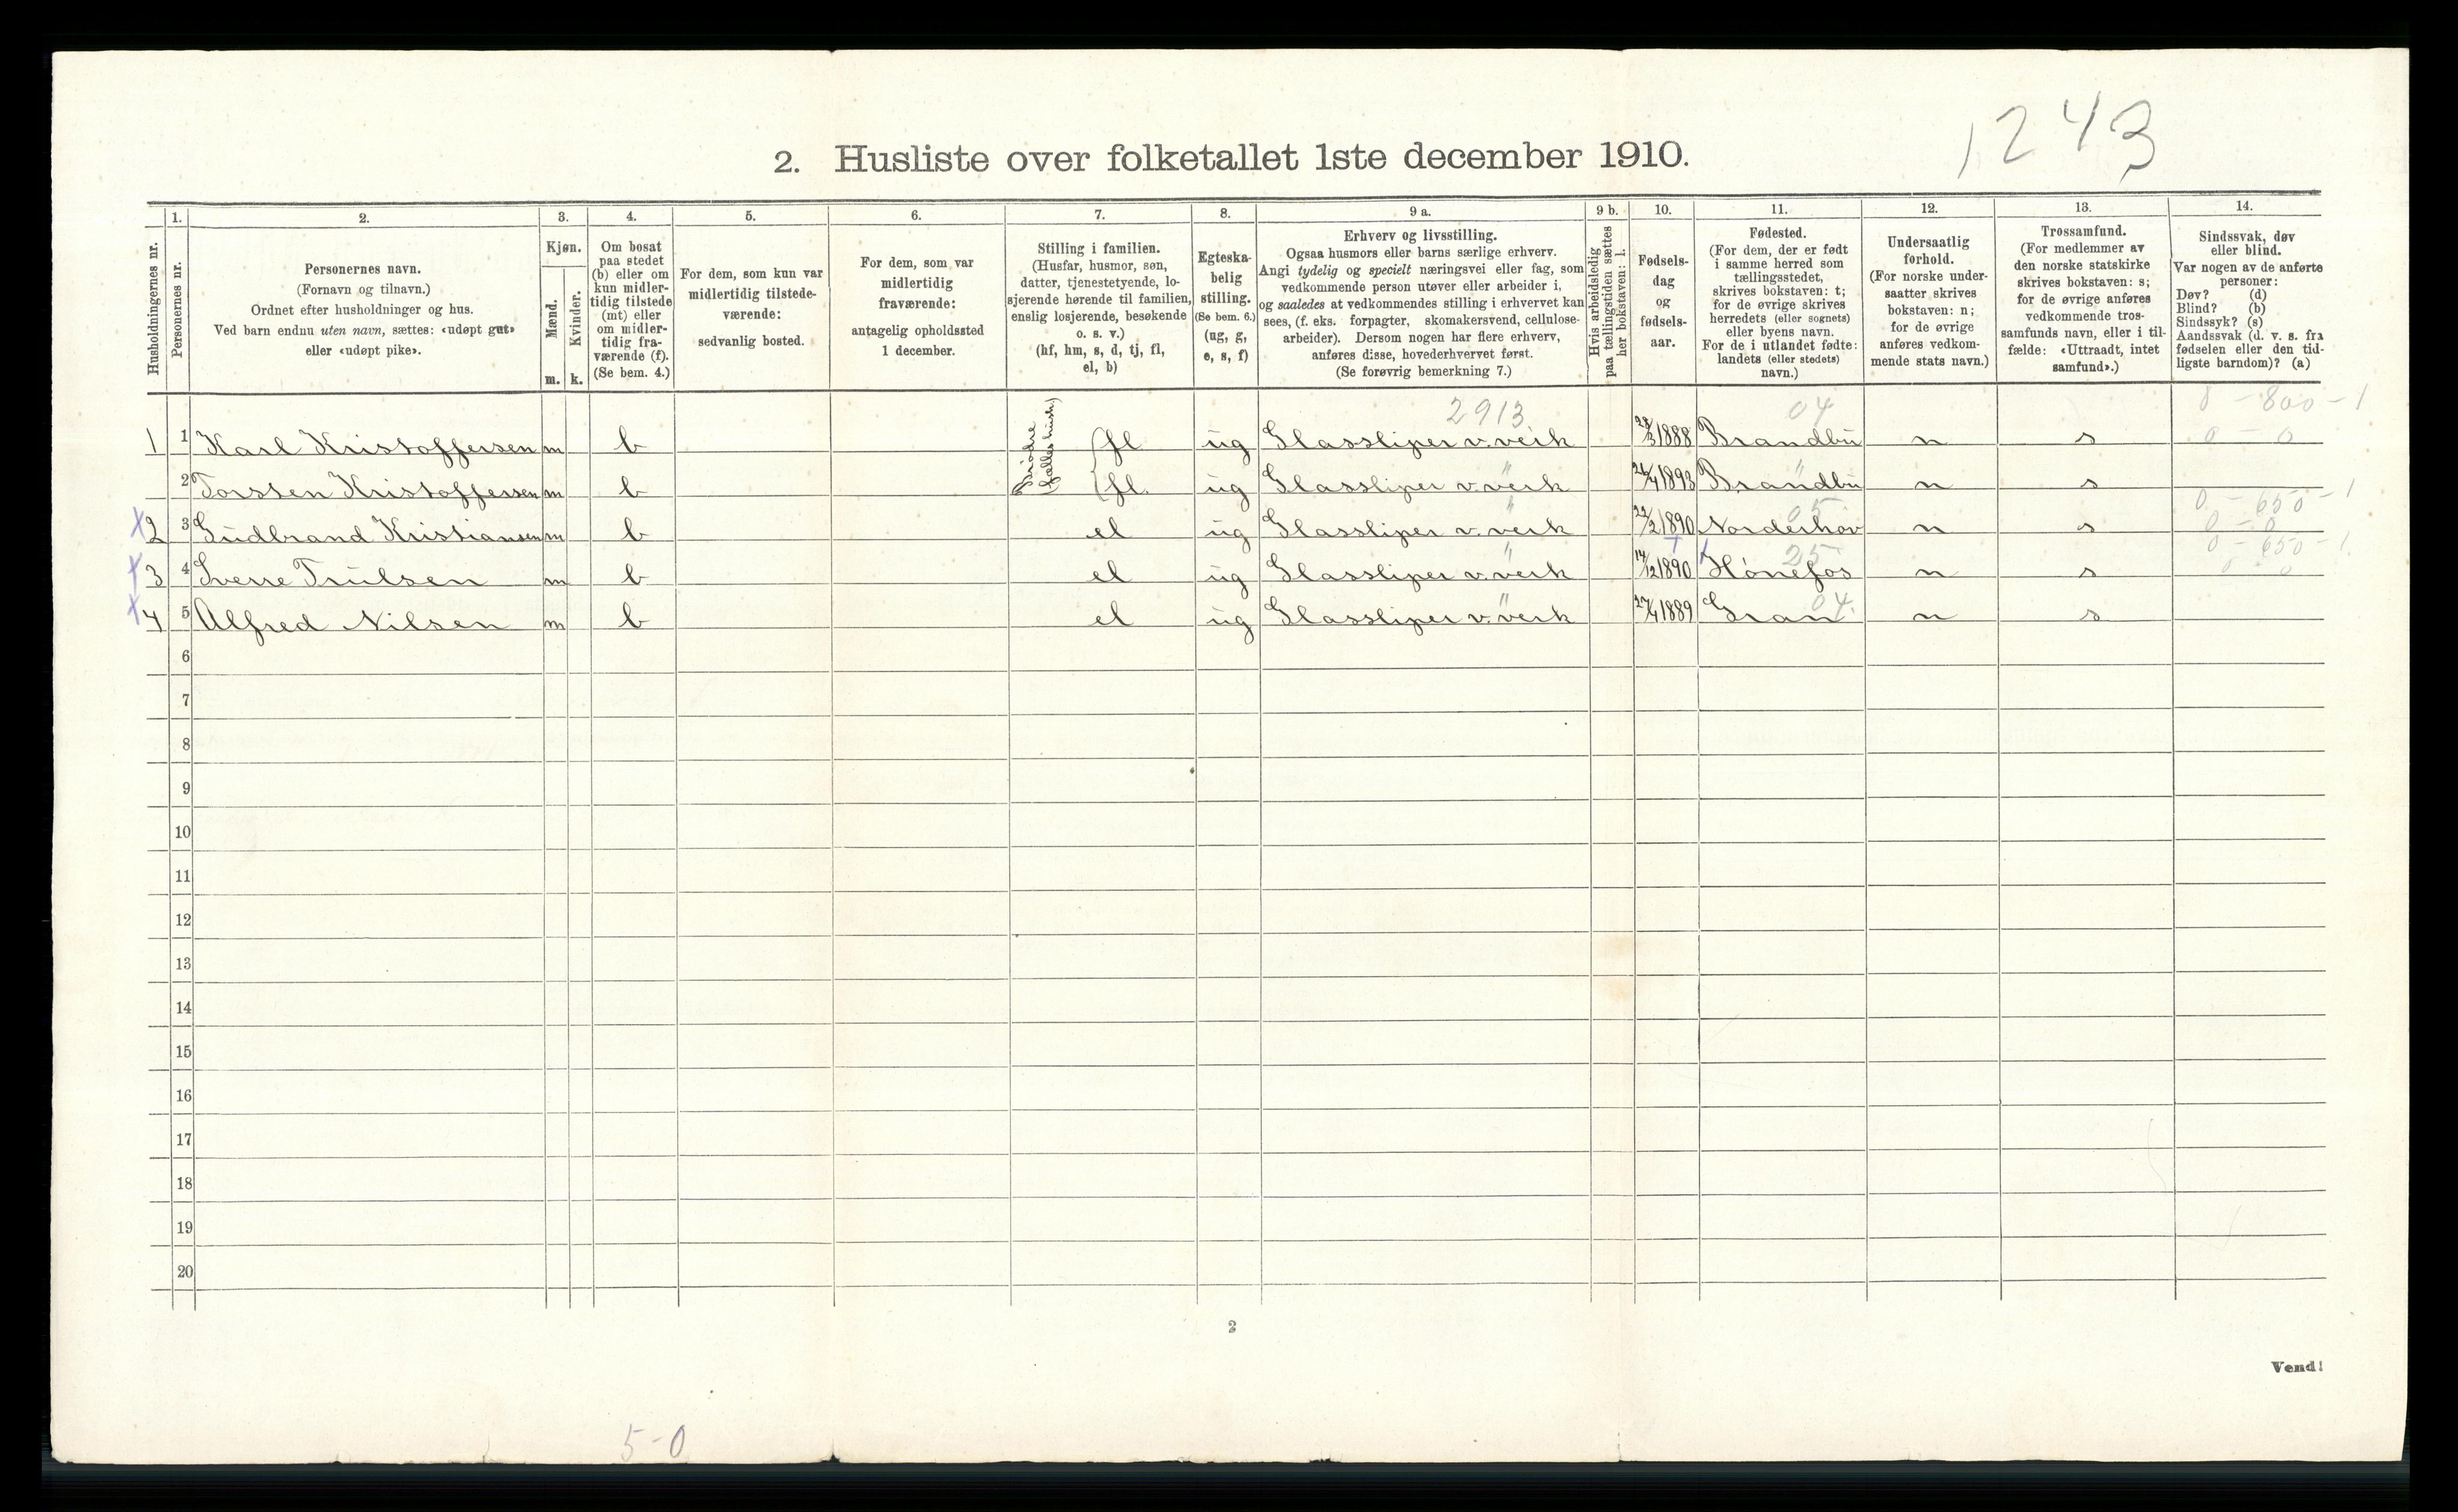 1243
2. Husliste over folketallet 1ste december 1910.
Husholdningernes nr.
1.
Personernes nr.
2.
Personernes navn.
(Fornavn og tilnavn.)
Ordnet efter husholdninger og hus.
Ved barn endnu uten navn, sættes: «udøpt gut»
eller «udøpt pike».
3.
Kjøn.
Mænd.
Kvinder.
m. k.
4.
Om bosat
paa stedet
(b) eller om
kun midler-
tidig tilstede
(mt) eller
om midler-
tidig fra-
værende (f).
(Se bem. 4.)
5.
For dem, som kun var
midlertidig tilstede-
værende:
sedvanlig bosted.
6.
For dem, som var
midlertidig
fraværende:
antagelig opholdssted
1 december.
7.
Stilling i familien.
(Husfar, husmor, søn,
datter, tjenestetyende, lo-
sjerende hørende til familien,
enslig losjerende, besøkende
o. s. v.)
(hf, hm, s, d, tj, fl,
el, b)
8.
Egteska-
belig
stilling.
(Se bem. 6.)
(ug, g,
e, s, f)
9 a.
Erhverv og livsstilling.
Ogsaa husmors eller barns særlige erhverv.
Angi tydelig og specielt næringsvei eller fag, som
vedkommende person utøver eller arbeider i,
og saaledes at vedkommendes stilling i erhvervet kan
sees, (f. eks. forpagter, skomakersvend, cellulose-
arbeider). Dersom nogen har flere erhverv,
anføres disse, hovederhvervet først.
(Se forøvrig bemerkning 7.)
9 b.
Hvis arbeidsledig
paa tællingstiden sættes
her bokstaven: l.
10.
Fødsels-
dag
og
fødsels-
aar.
11.
Fødested.
(For dem, der er født
i samme herred som
tællingsstedet,
skrives bokstaven: t;
for de øvrige skrives
herredets (eller sognets)
eller byens navn.
For de i utlandet fødte:
landets (eller stedets)
navn.)
12.
Undersaatlig
forhold.
(For norske under-
saatter skrives
bokstaven: n;
for de øvrige
anføres vedkom-
mende stats navn.)
13.
Trossamfund.
(For medlemmer av
den norske statskirke
skrives bokstaven: s;
for de øvrige anføres
vedkommende tros-
samfunds navn, eller i til-
fælde: «Uttraadt, intet
samfund».)
14.
Sindssvak, døv
eller blind.
Var nogen av de anførte
personer:
Døv? (d)
Blind? (b)
Sindssyk? (s)
Aandssvak (d. v. s. fra
fødselen eller den tid-
ligste barndom)? (a)
2913 04 0 - 800 - 1
Brødre
1 1 Karl Kristoffersen m b fl ug Glassliper v. verk 1888 Brandbu n s 0 - 0
2 Torsten Kristoffersen m b fl. ug Glassliper v. verk 1893 Brandbu n s
05 0 - 650 - 1
x 2 3 Gudbrand Kristiansen m b el ug Glassliper v. verk 1890 Norderhov n s 0 - 0
25 0 - 650 - 1
x 3 4 Sverre Trulsen m b el ug Glassliper v. verk 14/12 1890 Hönefos n s 0 - 0
04.
x 4 5 Alfred Nilsen m b el ug Glassliper v. verk 1889 Gran n s
6
7
8
9
10
11
12
13
14
15
16
17
18
19
20
2
Vend!
5-0